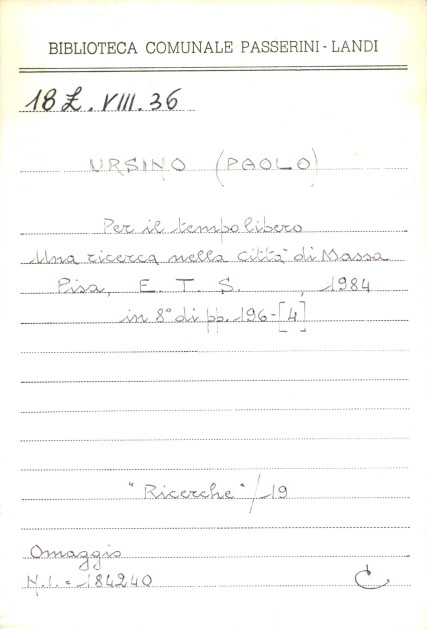 BIBLIOTECA COMUNALE PASSERINI-LANDI
18 Z. VIII. 36
URSINO (PAOLO)
Per il tempo libero
Una ricerca nella città di Massa
Pisa, E. T. S. , 1984
in 8° di pp. 196-[4]
"Ricerche"/19
Omaggio
N.I. = 184240